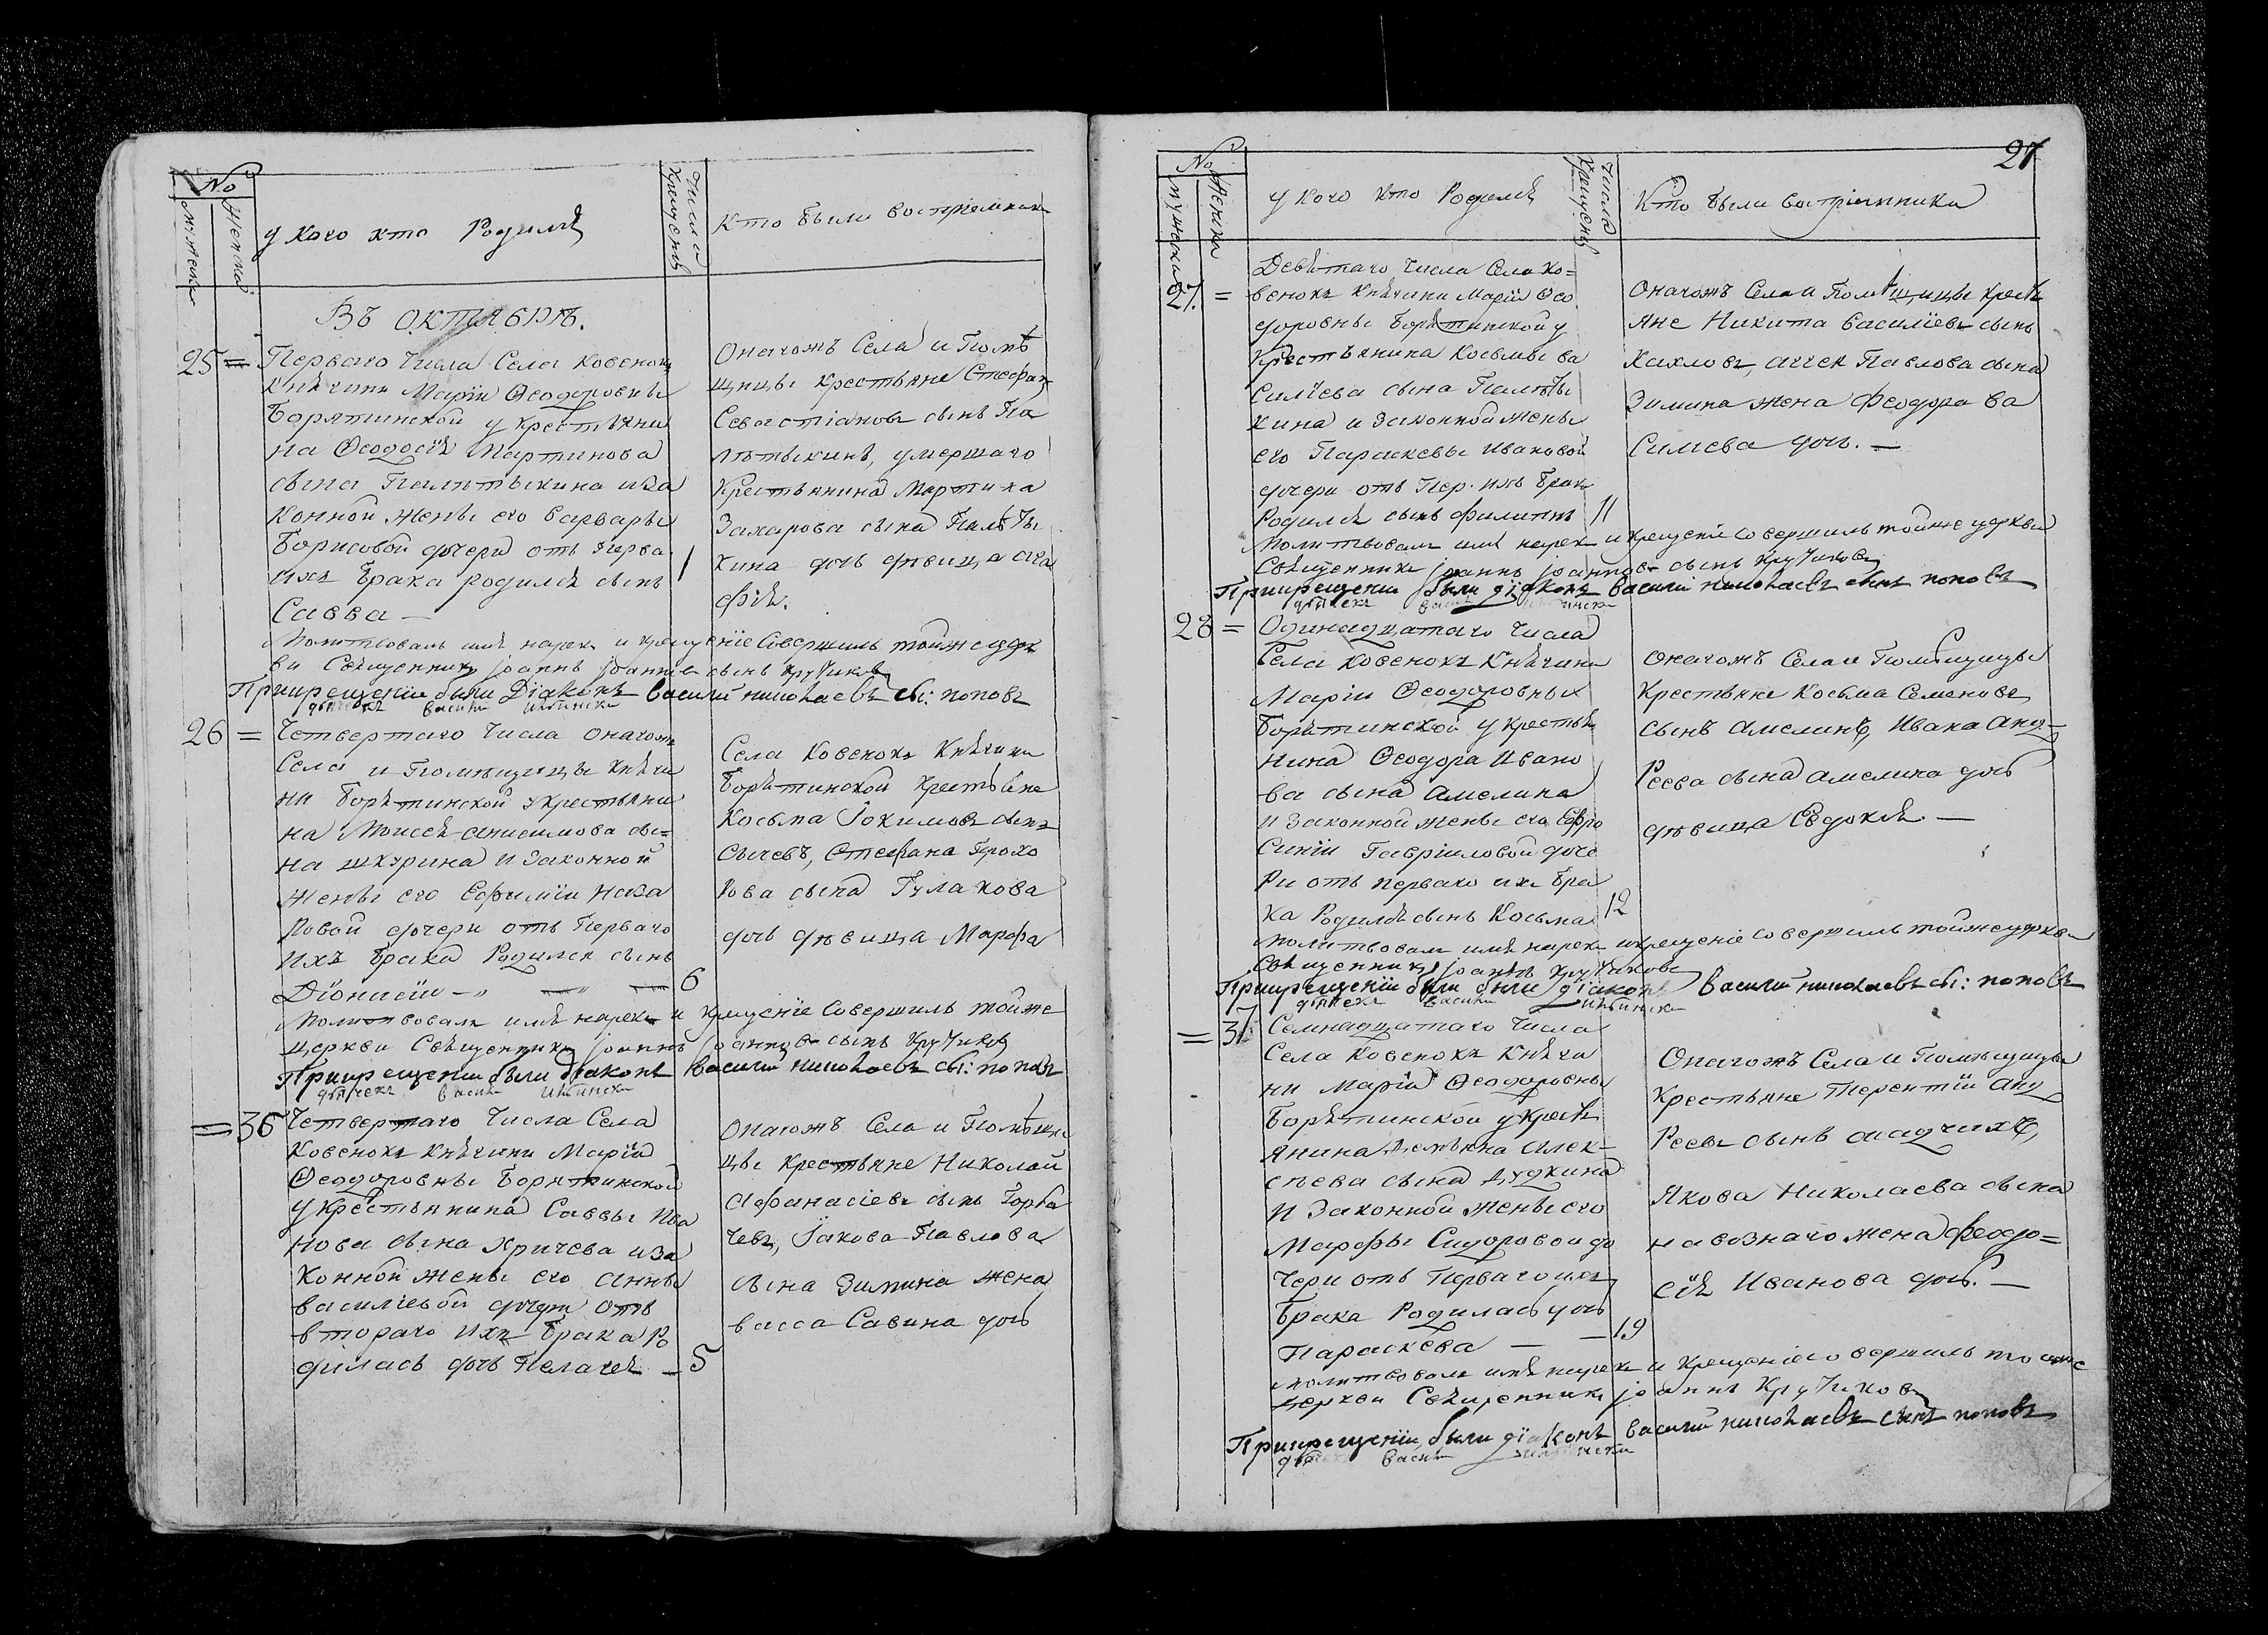 №
Мужеска
Женска
у кого кто Родился
Числа Крещенія
Кто были воспріемники
Въ ОКТЯБРѢ.
25 =
Перваго числа Села Ковенокъ
Княгини Маріи Ѳеодоровны
Борятинской у крестьяни
на Ѳеодосія Мартинова
сына Палятыкина и за
конной жены его Варвары
Борисовой дочери отъ перва
ихъ брака родился сынъ
Савва —
1
Оногожъ Села и Помѣ
щицы крестьяне Стефанъ
Севастіановъ сынъ Па
лятыкинъ, умершаго
крестьянина Мартина
Захарова сына Паляты
кина дочь дѣвица Ага
фія.
Молитвовалъ имя нарекъ и крещеніе Совершилъ тойже црк
ви Священникъ Іоаннъ Іоанновъ сынъ Крутиковъ
При крещеніи были Діаконъ Василій Николаевъ сы: поповъ
дьячекъ Василій
26 =
Четвертаго числа оногожъ
Села и Помѣщицы Княги
ни Борятинской у крестьяни
на Моисея Анисимова сы=
на Шкурина и Законной
жены его Ефиміи Наза
ровой дочери отъ Перваго
ихъ брака Родился сынъ
Діонисій — „ — „ —
6
Села Ковенокъ Княгини
Борятинской крестьяне
Косьма Іокимовъ сынъ
Сычевъ, Стефана Прохо
рова сына Гулакова
дочь дѣвица Марфа
Молитвовалъ имя нарекъ и крещеніе Совершилъ тойже
церкви Священникъ Іоаннъ Іоанновъ сынъ Крутиковъ
При крещеніи были діаконъ Василій Николаевъ сы: поповъ
дьячекъ Василій
= 36
Четвертаго числа Села
Ковенокъ Княгини Маріи
Ѳеодоровны Борятинской
у крестьянина Саввы Ива
нова сына Хричева и за
конной жены его Анны
Василіевой дочери отъ
втораго ихъ брака Ро
дилась дочь Пелагея —
5
Оногожъ Села и Помѣщи
цы крестьяне Николай
Афанасіевъ сынъ Горба
чевъ, Іакова Павлова
сына Зимина жена
Васса Савина дочь
27
№
Мужеска
Женска
у кого кто Родился
Числа Крещенія
Кто были воспріемники
27. =
Девятаго числа Села Ко=
венокъ Княгини Маріи Ѳео
доровны Борятинской у
крестьянина Косьмы Ва
силіева сына Паляты
кина и Законной жены
его Параскевы Ивановой
дочери отъ Пер. ихъ брака
Родился сынъ Филиппъ
11
Оногожъ Села и Помѣщицы кресть
яне Никита Василіевъ сынъ
Хахловъ, Павлова сына
Зимина жена Феодора Ва
силиева дочь. —
Молитвовалъ имя нарекъ и крещеніе совершилъ тойже церкви
Священникъ Іоаннъ Іоанновъ сынъ Крутиковъ
При крещеніи были діаконъ Василій Николаевъ сынъ поповъ
дьячекъ
28 =
Одинадцатаго числа
Села Ковенокъ Княгини
Маріи Ѳеодоровны
Борятинской у крестья
нина Ѳеодора Ивано
ва сына Амелина
и Законной жены его Ефро
синіи Гавріиловой доче
ри отъ перваго ихъ бра
ка Родился сынъ Косьма
12
Оногожъ Села и Помѣщицы
крестьяне Косьма Семеновъ
сынъ Амелинъ, Ивана Анд=
реева сына Амелина дочь
дѣвица Евдокія. —
Молитвовалъ имя нарекъ и крещеніе совершилъ тойже церкви
Священникъ Іоаннъ Крутиковъ
При крещеніи были были діаконъ Василій Николаевъ сы: поповъ
дьячекъ Василій
= 37
Семнадцатаго числа
Села Ковенокъ Княги
ни Маріи Ѳеодоровны
Борятинской у кресть
янина Демьяна Алек-
сѣева сына Дудкина
и Законной жены его
Марфы Сидоровой до
чери отъ Перваго ихъ
брака Родилась дочь
Параскева — —
19
Оногожъ Села и Помѣщицы
Крестьяне Терентій Анд
реевъ сынъ
Якова Николаева сына
жена Феодо=
сія Иванова дочь. —
Молитвовалъ имя нарекъ и крещеніе совершилъ тойже
церкви Священникъ Іоаннъ Крутиковъ
При крещеніи были діаконъ Василій Николаевъ сынъ поповъ